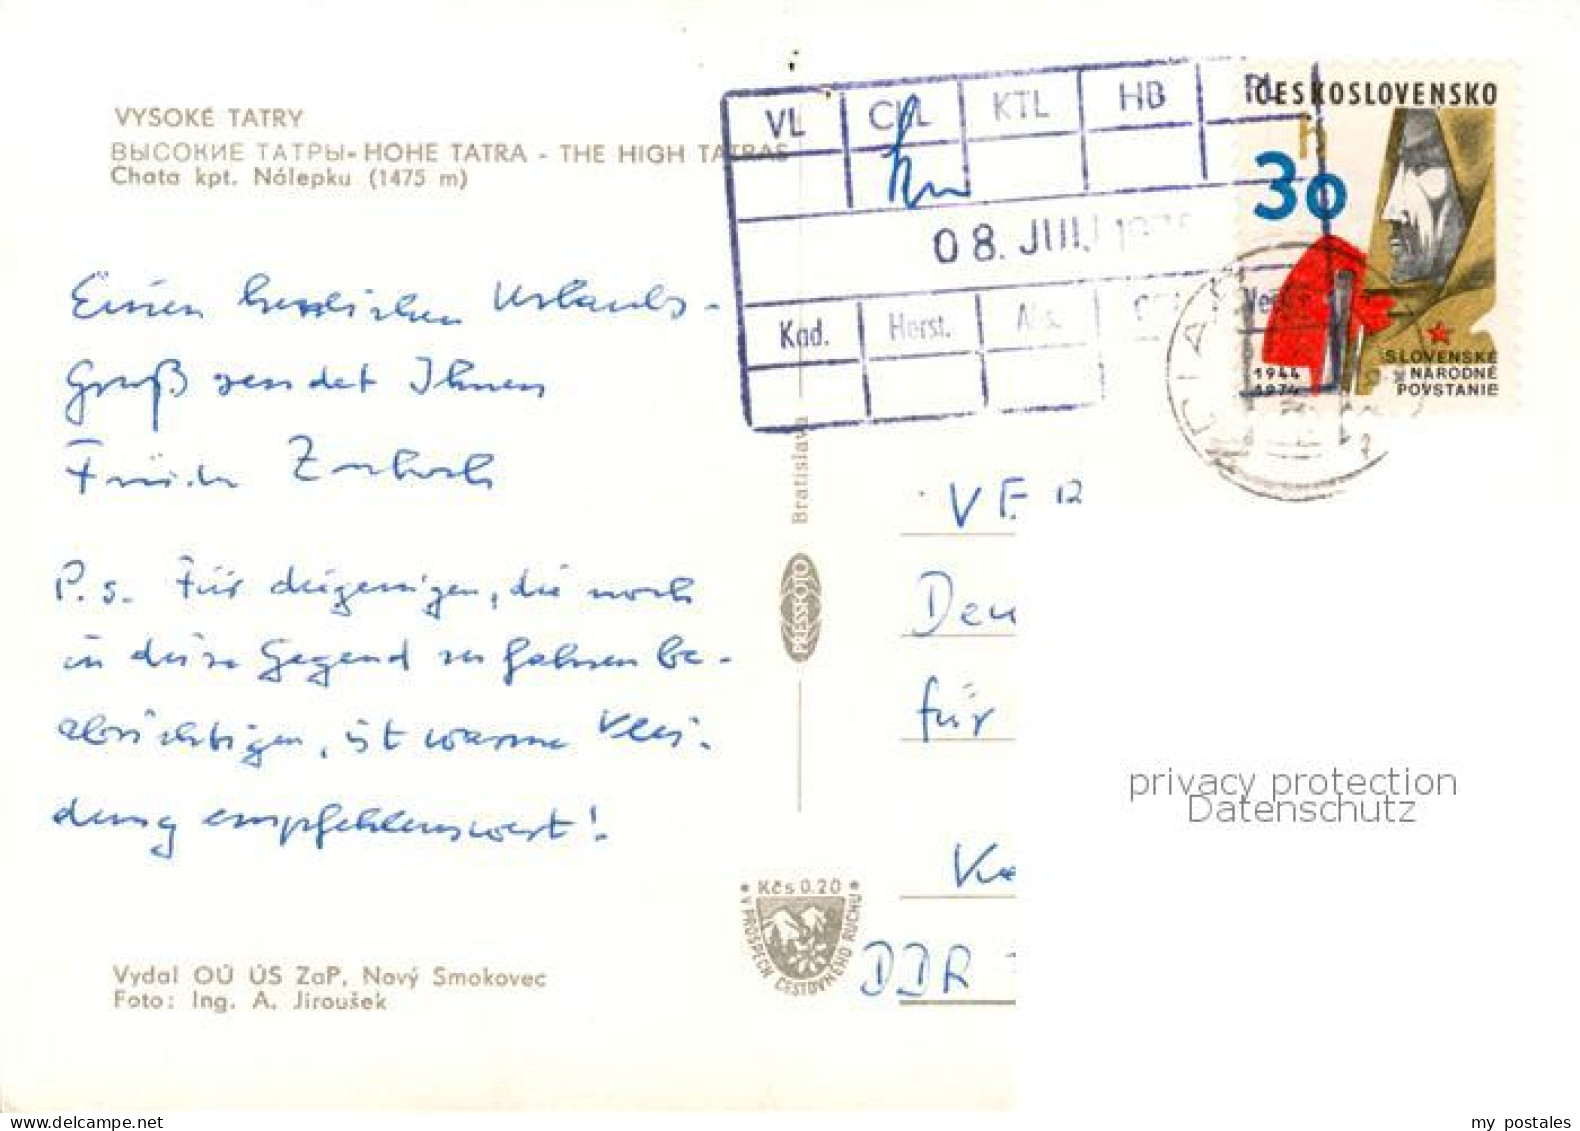 VYSOKÉ TATRY
ВЫСОКИЕ ТАТРЫ - HOHE TATRA - THE HIGH TATRAS
Chata kpt. Nálepku (1475 m)
VL CKL KTL HB PL
08. JUL 1975
Kad. Herst. Abs.
ČESKOSLOVENSKO
30 h
1944
1974
SLOVENSKÉ
NÁRODNÉ
POVSTANIE
Einen herzlichen Urlaubs-
Gruß sendet Ihnen
P.s. Für diejenigen, die noch
in diese Gegend zu fahren be-
absichtigen, ist warme Klei-
dung empfehlenswert!
Bratislava
PRESSFOTO
VEB
Deu
für
DDR
privacy protection
Datenschutz
* Kčs 0.20 *
V PROSPECH CESTOVNÉHO RUCHU
Vydal OÚ ÚS ZaP, Nový Smokovec
Foto: Ing. A. Jiroušek
my postales